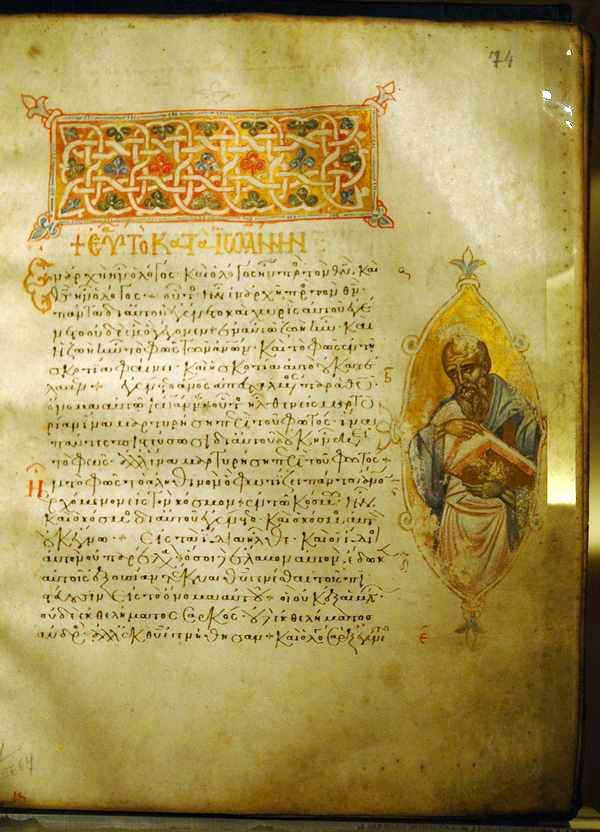 74
+ ΕΥ ΤΟ ΚΑΤΑ ΙΩΑΝΝΗΝ
Ἐν ἀρχῇ ἦν ὁ λόγος· καὶ ὁ λόγος ἦν πρὸς τὸν θν· καὶ
θς ἦν ὁ λόγος· οὗτος ἦν ἐν ἀρχῇ πρὸς τὸν θν·
πάντα δι αὐτοῦ ἐγένετο καὶ χωρὶς αὐτοῦ ἐγέ
νετο οὐδὲ ἓν ὃ γέγονεν· ἐν αὐτῶ ζωὴ ἦν· καὶ
ἡ ζωὴ ἦν τὸ φῶς τῶν ἀνων· καὶ τὸ φῶς ἐν τῆ
σκοτία φαίνει· καὶ ἡ σκοτία αὐτὸ οὐ κατέ
λαβεν + ἐγένετο ἄνος ἀπεσταλμένος παρὰ θυ
ὄνομα αὐτῶ ἰωάννης οὗτος ἦλθεν εἰς μαρτυ
ρίαν ἵνα μαρτυρήση περὶ τοῦ φωτός· ἵνα
πάντες πιστεύσωσι δι αὐτοῦ οὐκ ἦν ἐκεῖνος
τὸ φῶς· ἀλλ ἵνα μαρτυρήση περὶ τοῦ φωτός +
ἦν τὸ φῶς τὸ ἀληθινὸν ὃ φωτίζει πάντα ἄνον
ἐρχόμενον εἰς τὸν κόσμον + ἐν τῶ κόσμω ἦν
καὶ ὁ κόσμος δι αὐτοῦ ἐγένετο· καὶ ὁ κόσμος αὐτὸν
οὐκ ἔγνω + εἰς τὰ ἴδια ἦλθε· καὶ οἱ ἴδιοι
αὐτὸν οὐ παρέλαβον· ὅσοι δὲ ἔλαβον αὐτόν, ἔδωκεν
αὐτοῖς ἐξουσίαν τέκνα θυ γενέσθαι τοῖς πι
στεύουσιν εἰς τὸ ὄνομα αὐτοῦ· οἳ οὐκ ἐξ αἱμάτων
οὐδὲ ἐκ θελήματος σαρκός· οὐδὲ ἐκ θελήματος
ἀνδρός· ἀλλ ἐκ θυ ἐγεννήθησαν + καὶ ὁ λόγος σὰρξ ἐγένετο